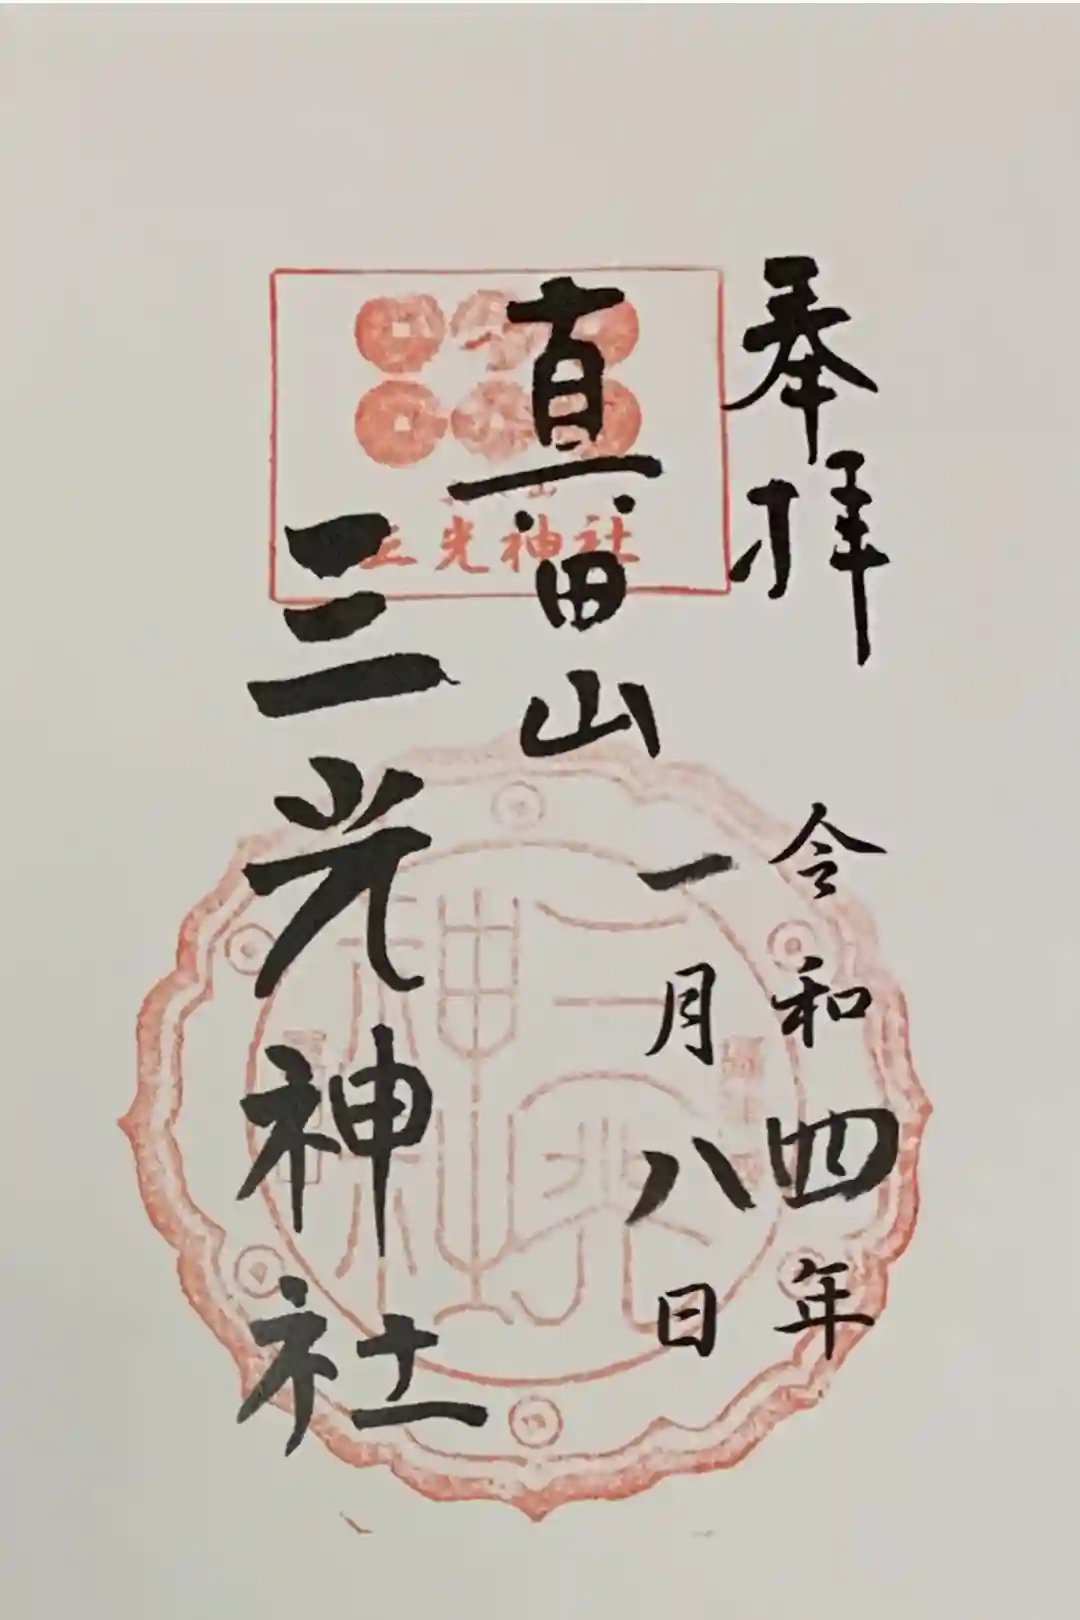 奉拝
令和四年
一月八日
真田山
三光神社
三光神社
三光神社